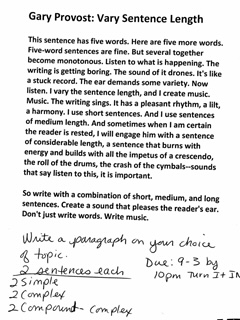 Gary Provost: Vary Sentence Length
This sentence has five words. Here are five more words.
Five-word sentences are fine. But several together
become monotonous. Listen to what is happening. The
writing is getting boring. The sound of it drones. It's like
a stuck record. The ear demands some variety. Now
listen. I vary the sentence length, and I create music.
Music. The writing sings. It has a pleasant rhythm, a lilt,
a harmony. I use short sentences. And I use sentences
of medium length. And sometimes when I am certain
the reader is rested, I will engage him with a sentence
of considerable length, a sentence that burns with
energy and builds with all the impetus of a crescendo,
the roll of the drums, the crash of the cymbals--sounds
that say listen to this, it is important.
So write with a combination of short, medium, and long
sentences. Create a sound that pleases the reader's ear.
Don't just write words. Write music.
Write a paragraph on your choice
of topic.
Due: 9-3 by
10pm Turn It In
2 sentences each
2 Simple
2 Complex
2 Compound-Complex